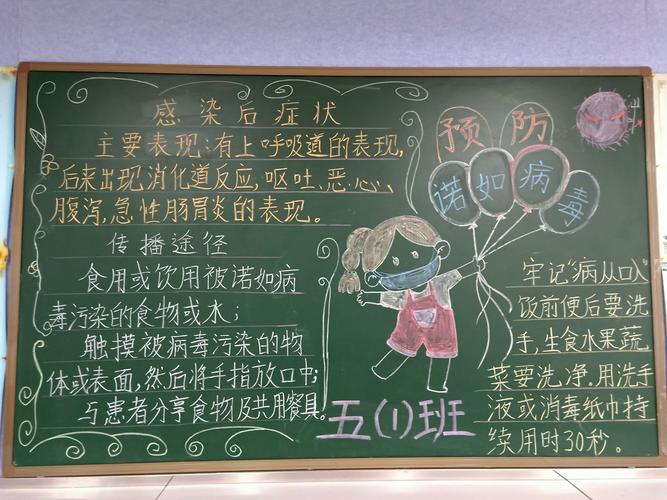 感染后症状
主要表现:有上呼吸道的表现,
后来出现消化道反应,呕吐、恶心、
腹泻,急性肠胃炎的表现。
传播途径
食用或饮用被诺如病
毒污染的食物或水;
触摸被病毒污染的物
体或表面,然后将手指放口中;
与患者分享食物及共用餐具。
预防
诺如病毒
五(1)班
牢记“病从口入”
饭前便后要洗
手,生食水果蔬
菜要洗净.用洗手
液或消毒纸巾持
续用时30秒。